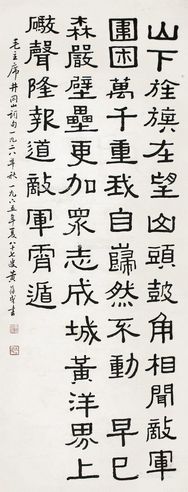 山下旌旗在望山頭鼓角相聞敵軍
圍困萬千重我自巋然不動 早已
森嚴壁壘更加眾志成城黃洋界上
礮聲隆報道敵軍霄遁
毛主席井岡山詞句一九二八年秋 一九六五年夏八十七叟黃葆戉書